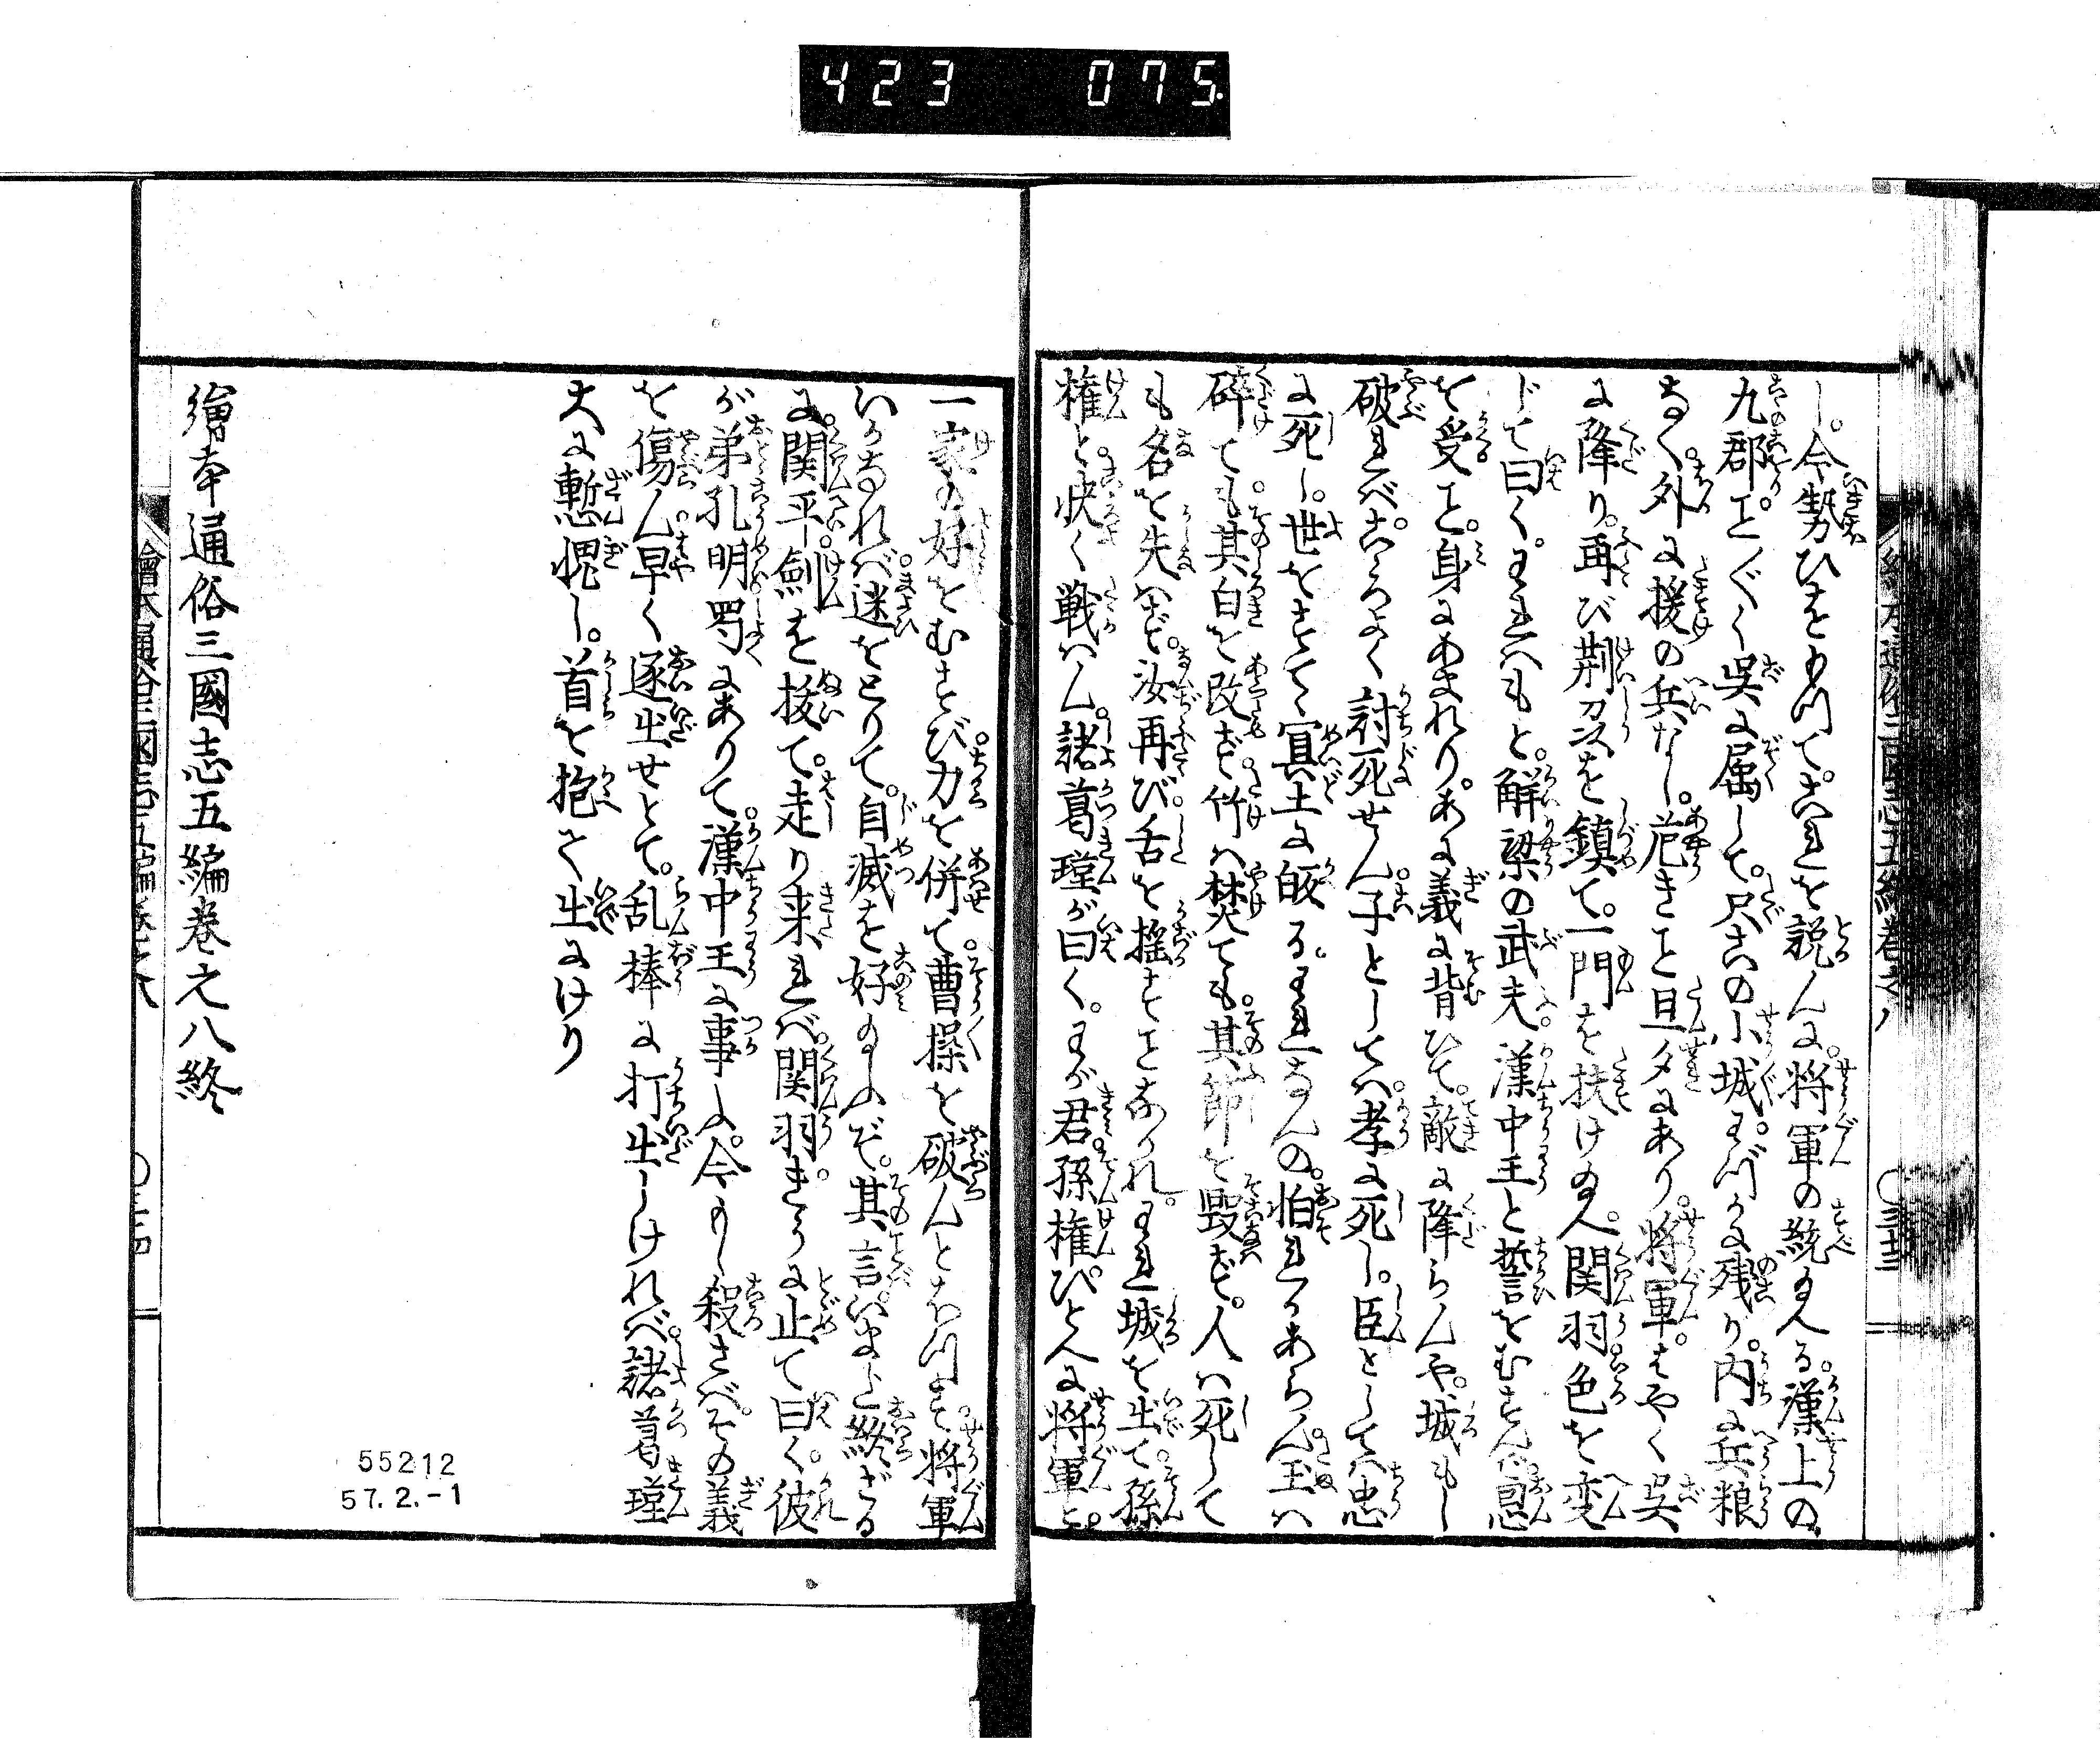 423 075.
し。今勢ひをもつてこれを説んに。将軍の統給へる。漢上の
九郡。こと〴〵く呉に属して。只この小城。わづかに残り。内に兵粮
なく。外に援の兵なし。危きこと旦夕にあり。将軍。はやく呉
に降り。再び荆州を鎮て。一門を扶け給へ。関羽色を変
じて曰く。われハもと。解梁の武夫。漢中王と誓をむすんで。恩
を受こと。身にあまれり。あに義に背ひて。敵に降らんや。城もし
破れバ。こゝろよく討死せん。子としてハ。孝に死し。臣としてハ。忠
に死し。世をすてゝ冥土に皈る。われなんの。怕れかあらん。玉ハ
碎ても。其白を改ず。竹ハ焚ても。其節を毀ず。人ハ死して
も名を失ハず。汝再び。舌を揺すことなかれ。われ城を出て。孫
権と。快く戦ハん。諸葛瑾が曰く。わが君。孫権。ひとへに将軍と。
一家の好をむすび。力を併て。曹操を破んとおもつす。将軍
いかなれバ。迷をとりて。自滅を好給ふぞ。其言。いまだ終ざる
に。関平。劍を抜て。走り来れバ。関羽。きうに止て曰く。彼
が弟孔明。蜀にありて。漢中王に事ふ。今もし殺さバ。その義
を傷ん。早く逐出せとて。乱棒に打出しけれバ。諸葛瑾
大に慙愧し。首を抱て出にけり
繪本通俗三國志五編巻之八終
55212
57.2.-1